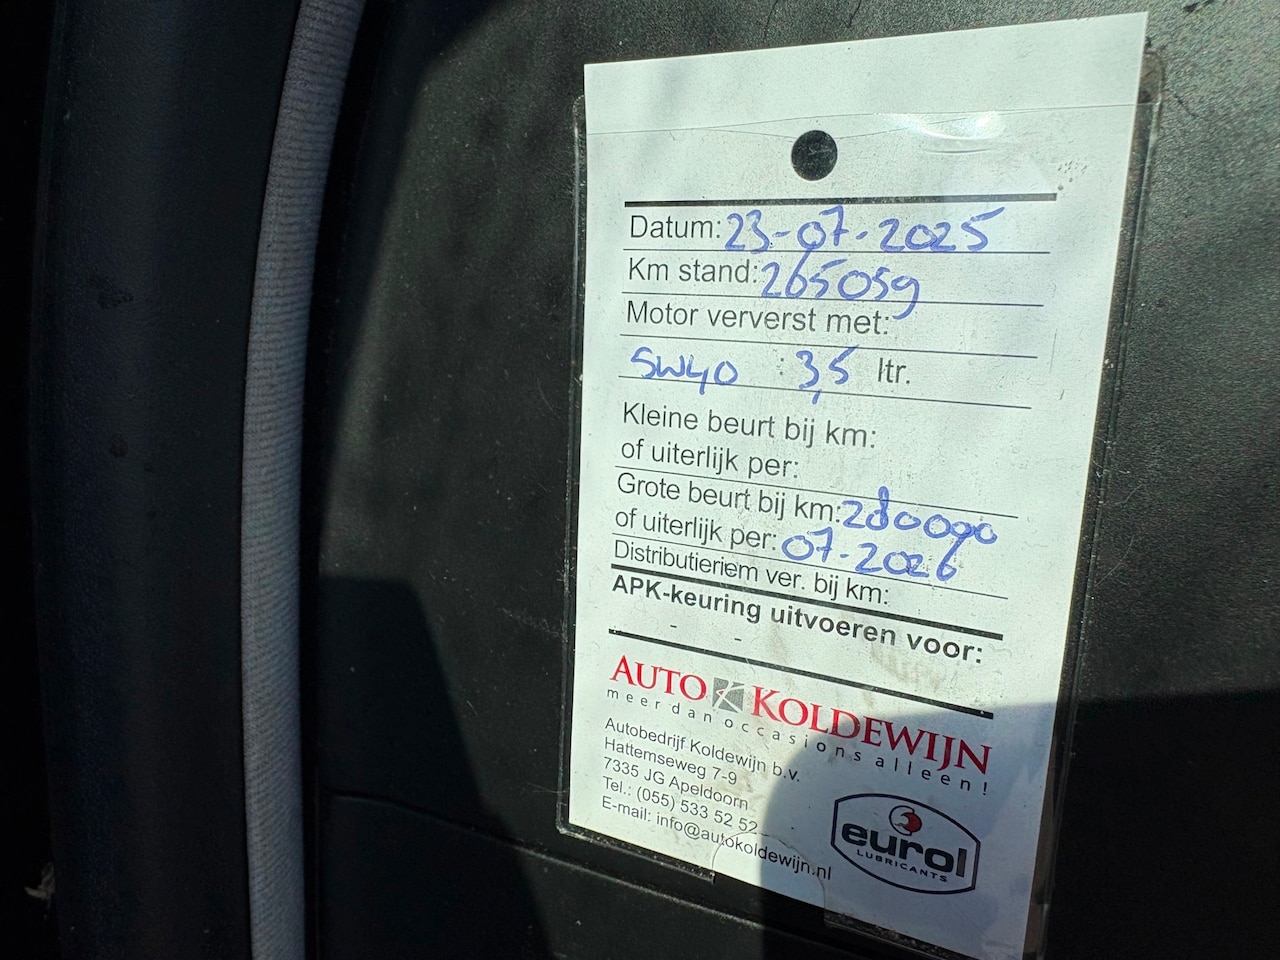 Datum: 23-07-2025
Km stand: 265059
Motor ververst met:
5W40 : 3,5 ltr.
Kleine beurt bij km:
of uiterlijk per:
Grote beurt bij km: 280000
of uiterlijk per: 07-2026
Distributieriem ver. bij km:
APK-keuring uitvoeren voor:
- -
AUTO KOLDEWIJN
meer dan occasions alleen!
Autobedrijf Koldewijn b.v.
Hattemseweg 7-9
7335 JG Apeldoorn
Tel.: (055) 533 52 52
E-mail: info@autokoldewijn.nl
eurol
LUBRICANTS